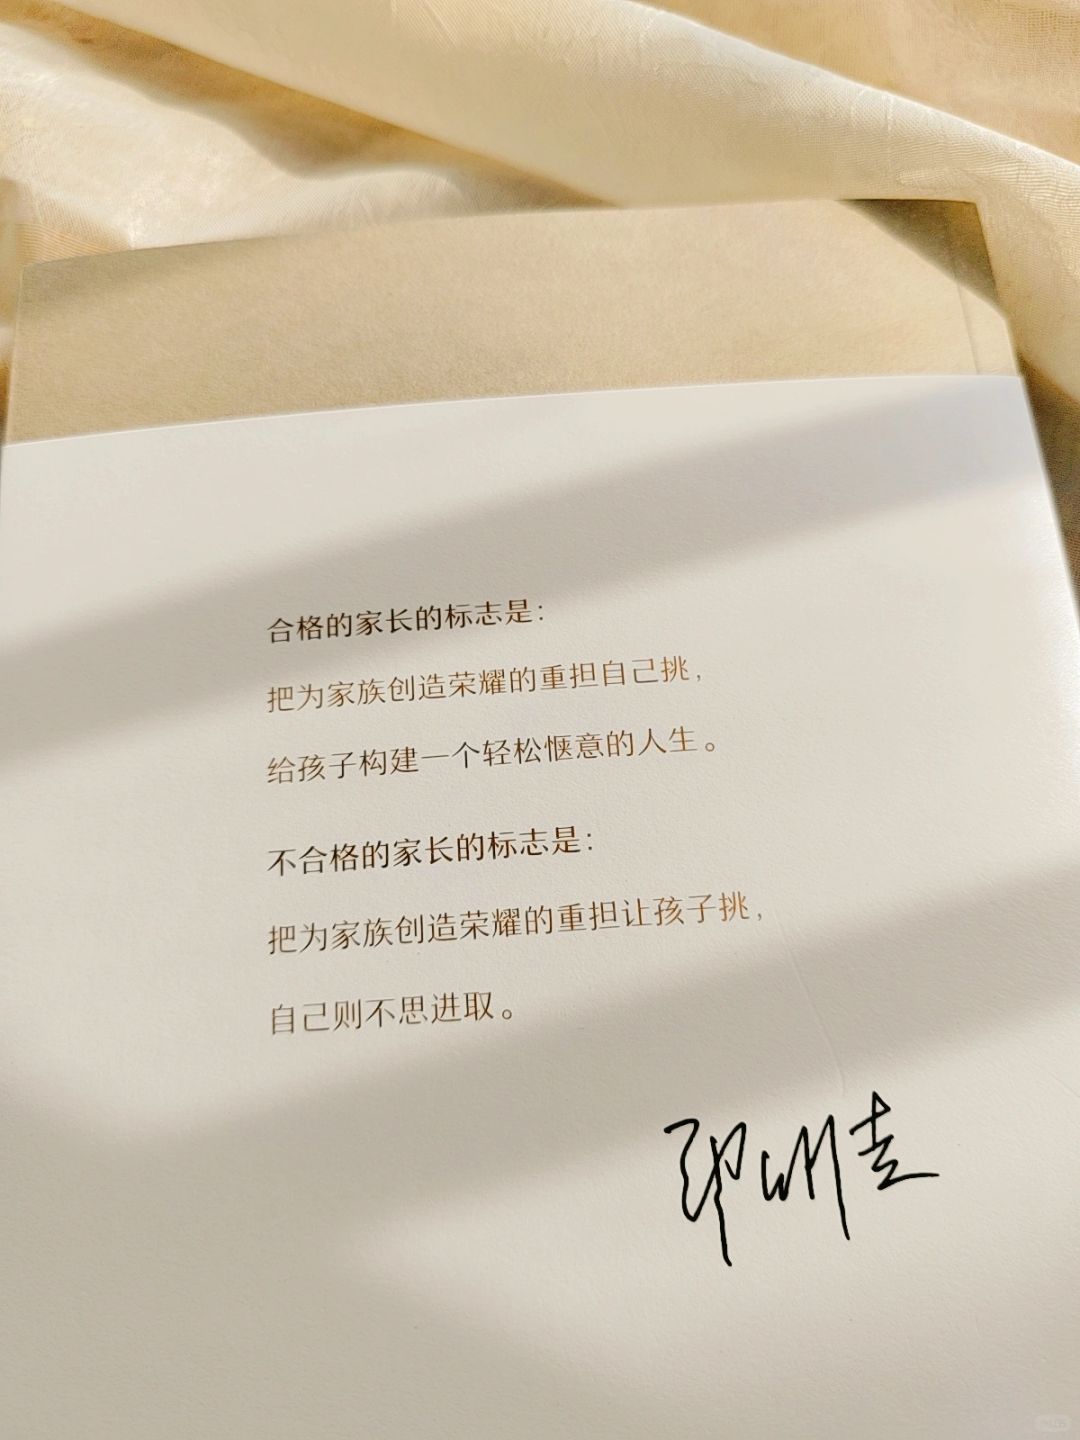 合格的家长的标志是：
把为家族创造荣耀的重担自己挑，
给孩子构建一个轻松惬意的人生。
不合格的家长的标志是：
把为家族创造荣耀的重担让孩子挑，
自己则不思进取。